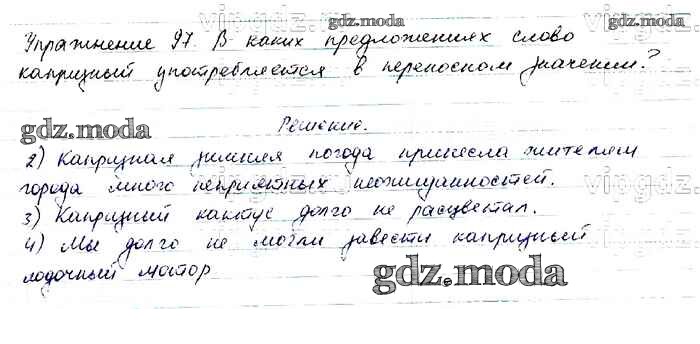 Упражнение 97. В каких предложениях слово
капризный употребляется в переносном значении?
Решение.
2) Капризная зимняя погода принесла жителям
города много неприятных неожиданностей.
3) Капризный кактус долго не расцветал.
4) Мы долго не могли завести капризный
лодочный мотор
gdz.moda
gdz.moda
gdz.moda